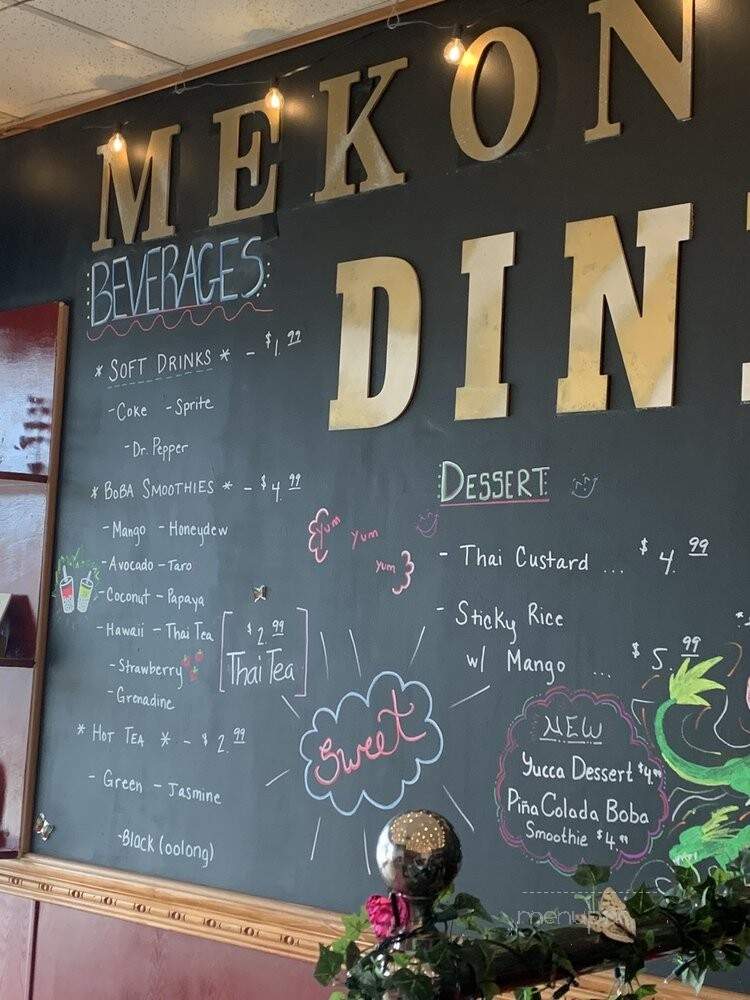 MEKON
DIN
BEVERAGES
* SOFT DRINKS * - $1.99
- Coke - Sprite
- Dr. Pepper
* BOBA SMOOTHIES * - $4.99
- Mango - Honeydew
- Avocado - Taro
- Coconut - Papaya
- Hawaii - Thai Tea
- Strawberry
- Grenadine
[$2.99
Thai Tea]
* HOT TEA * - $2.99
- Green - Jasmine
- Black (oolong)
yum
yum
yum
Sweet
DESSERT
- Thai Custard ... $4.99
- Sticky Rice
w/ Mango ... $5.99
NEW
Yucca Dessert $4.99
Piña Colada Boba
Smoothie $4.99